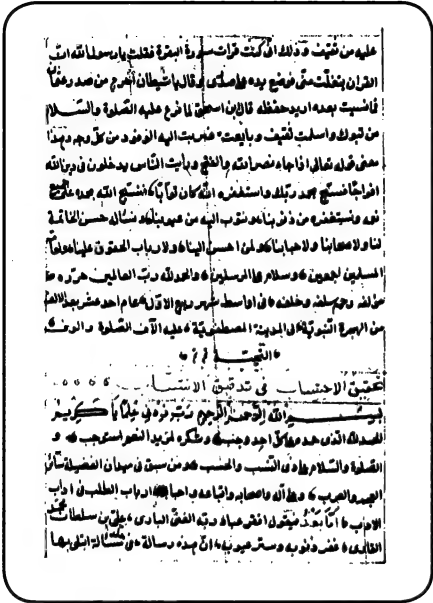 عليه من ثقيف وذلك انى كنت قرات سورة البقرة فقلت يا رسول الله ان
القران يتفلت منى فوضع يده على صدرى وقال يا شيطان اخرج من صدر عثمان
فما نسيت بعده اريد حفظه قال ابن اسحق لما فرغ عليه الصلوة والسلام
من تبوك واسلمت ثقيف وبايعت ضربت اليه الوفود من كل وجه وهذا
معنى قوله تعالى اذا جاء نصر الله والفتح ورايت الناس يدخلون فى دين الله
افواجا فسبح بحمد ربك واستغفره انه كان توابا فنسبح الله بحمده على جميع
نعمه ونستغفره من ذنوبنا ونتوب اليه من عيوبنا ونساله حسن الخاتمة
لنا ولاصحابنا ولاحبابنا ولمن احسن الينا ولارباب الحقوق علينا ولعامة
المسلمين اجمعين وسلام على المرسلين والحمد لله رب العالمين حرره
مؤلفه رحم سلفه وخلفه فى اواسط شهر ربيع الاول عام احد عشر بعد الالف
من الهجرة النبوية الى المدينة المصطفوية عليه الاف الصلوة والوف
التحية
تحقيق الاحتساب فى تدقيق الانتساب
بسم الله الرحمن الرحيم رب زدنى علما يا كريم
الحمد لله الذى حمده على كل احد وجب وشكره لمزيد النعم استوجب و
الصلوة والسلام على ذى النسب والحسب ومن سبق فى ميدان الفضيلة سائر
العجم والعرب وعلى آله واصحابه واتباعه واحبابه ارباب الطلب فى اداب
الادب اما بعد فيقول افقر عباد ربه الغنى البارى على بن سلطان محمد
القارى غفر ذنوبه وستر عيوبه ان هذه رسالة فى مسالة ابتلى بها